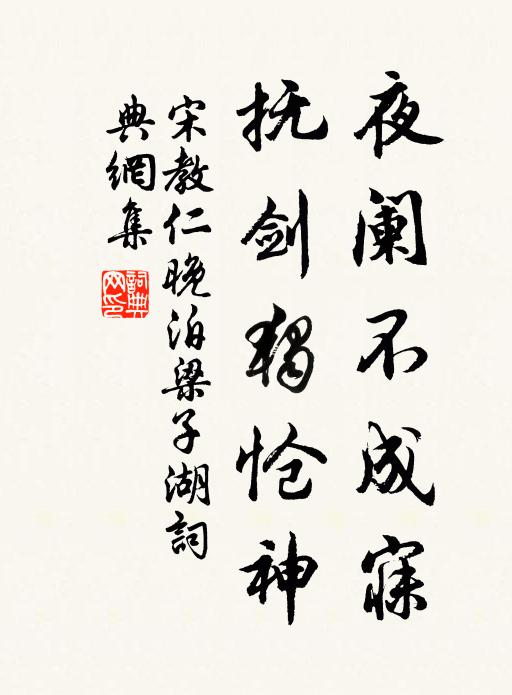 夜阑不成寐
抚剑独怆神
宋教仁晚泊梁子湖詞
典網集
詞典网印